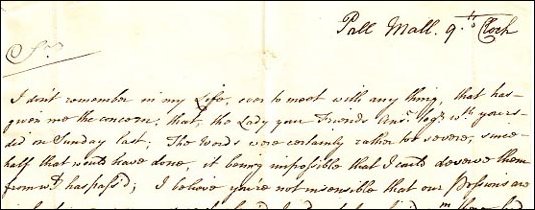 Pall Mall. 9. o Clock
Sr.
I don't remember in my Life, ever to meet with any thing, that has
given me the concern, that, the Lady your Friends Ansr.
did on Sunday last, The Words were certainly rather too severe, since
half that would have done, it being impossible that I could deserve them
from wt. has pass'd; I believe you're not insensible that our Passions are